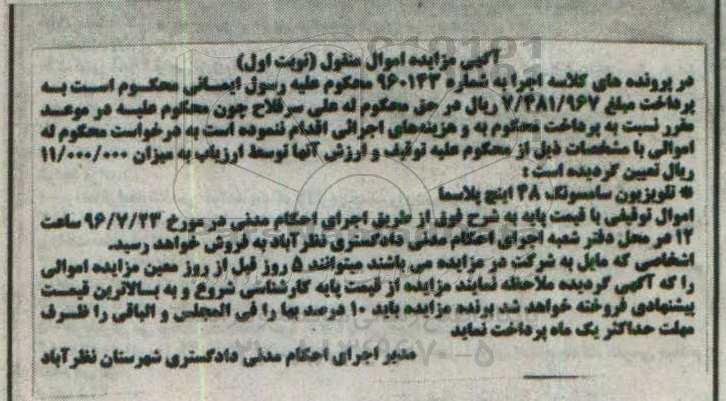 آگهی مزایده اموال منقول (نوبت اول)
در پرونده های کلاسه اجرا به شماره ۹۶۰۱۴۳ محکوم علیه رسول ایمانی محکوم است به
پرداخت مبلغ ۷/۴۸۱/۹۶۷ ریال در حق محکوم له علی سرفلاح چون محکوم علیه در موعد
مقرر نسبت به پرداخت محکوم به و هزینه‌های اجرائی اقدام ننموده است به درخواست محکوم له
اموالی با مشخصات ذیل از محکوم علیه توقیف و ارزش آنها توسط ارزیاب به میزان ۱۱/۰۰۰/۰۰۰
ریال تعیین گردیده است :
* تلویزیون سامسونگ ۴۸ اینچ پلاسما
اموال توقیفی با قیمت پایه به شرح فوق از طریق اجرای احکام مدنی در مورخ ۹۶/۷/۲۳ ساعت
۱۲ در محل دفتر شعبه اجرای احکام مدنی دادگستری نظرآباد به فروش خواهد رسید.
اشخاصی که مایل به شرکت در مزایده می باشند میتوانند ۵ روز قبل از روز معین مزایده اموالی
را که آگهی گردیده ملاحظه نمایند مزایده از قیمت پایه کارشناسی شروع و به بالاترین قیمت
پیشنهادی فروخته خواهد شد برنده مزایده باید ۱۰ درصد بها را فی المجلس و الباقی را ظرف
مهلت حداکثر یک ماه پرداخت نماید
مدیر اجرای احکام مدنی دادگستری شهرستان نظرآباد